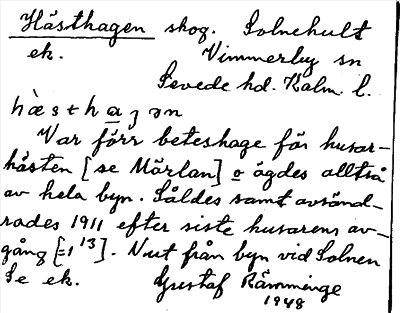 Hästhagen skog. Solnehult
ek. Vimmerby sn
Sevede hd. Kalm. l.
hàsthagən
Var förr beteshage för husar-
hästen [se Märlan] o ägdes alltså
av hela byn. Såldes samt avsönd-
rades 1911 efter siste husarens av-
gång [=1¹³]. N.ut från byn vid Solnen
Se ek. Gustaf Rämminge
1948